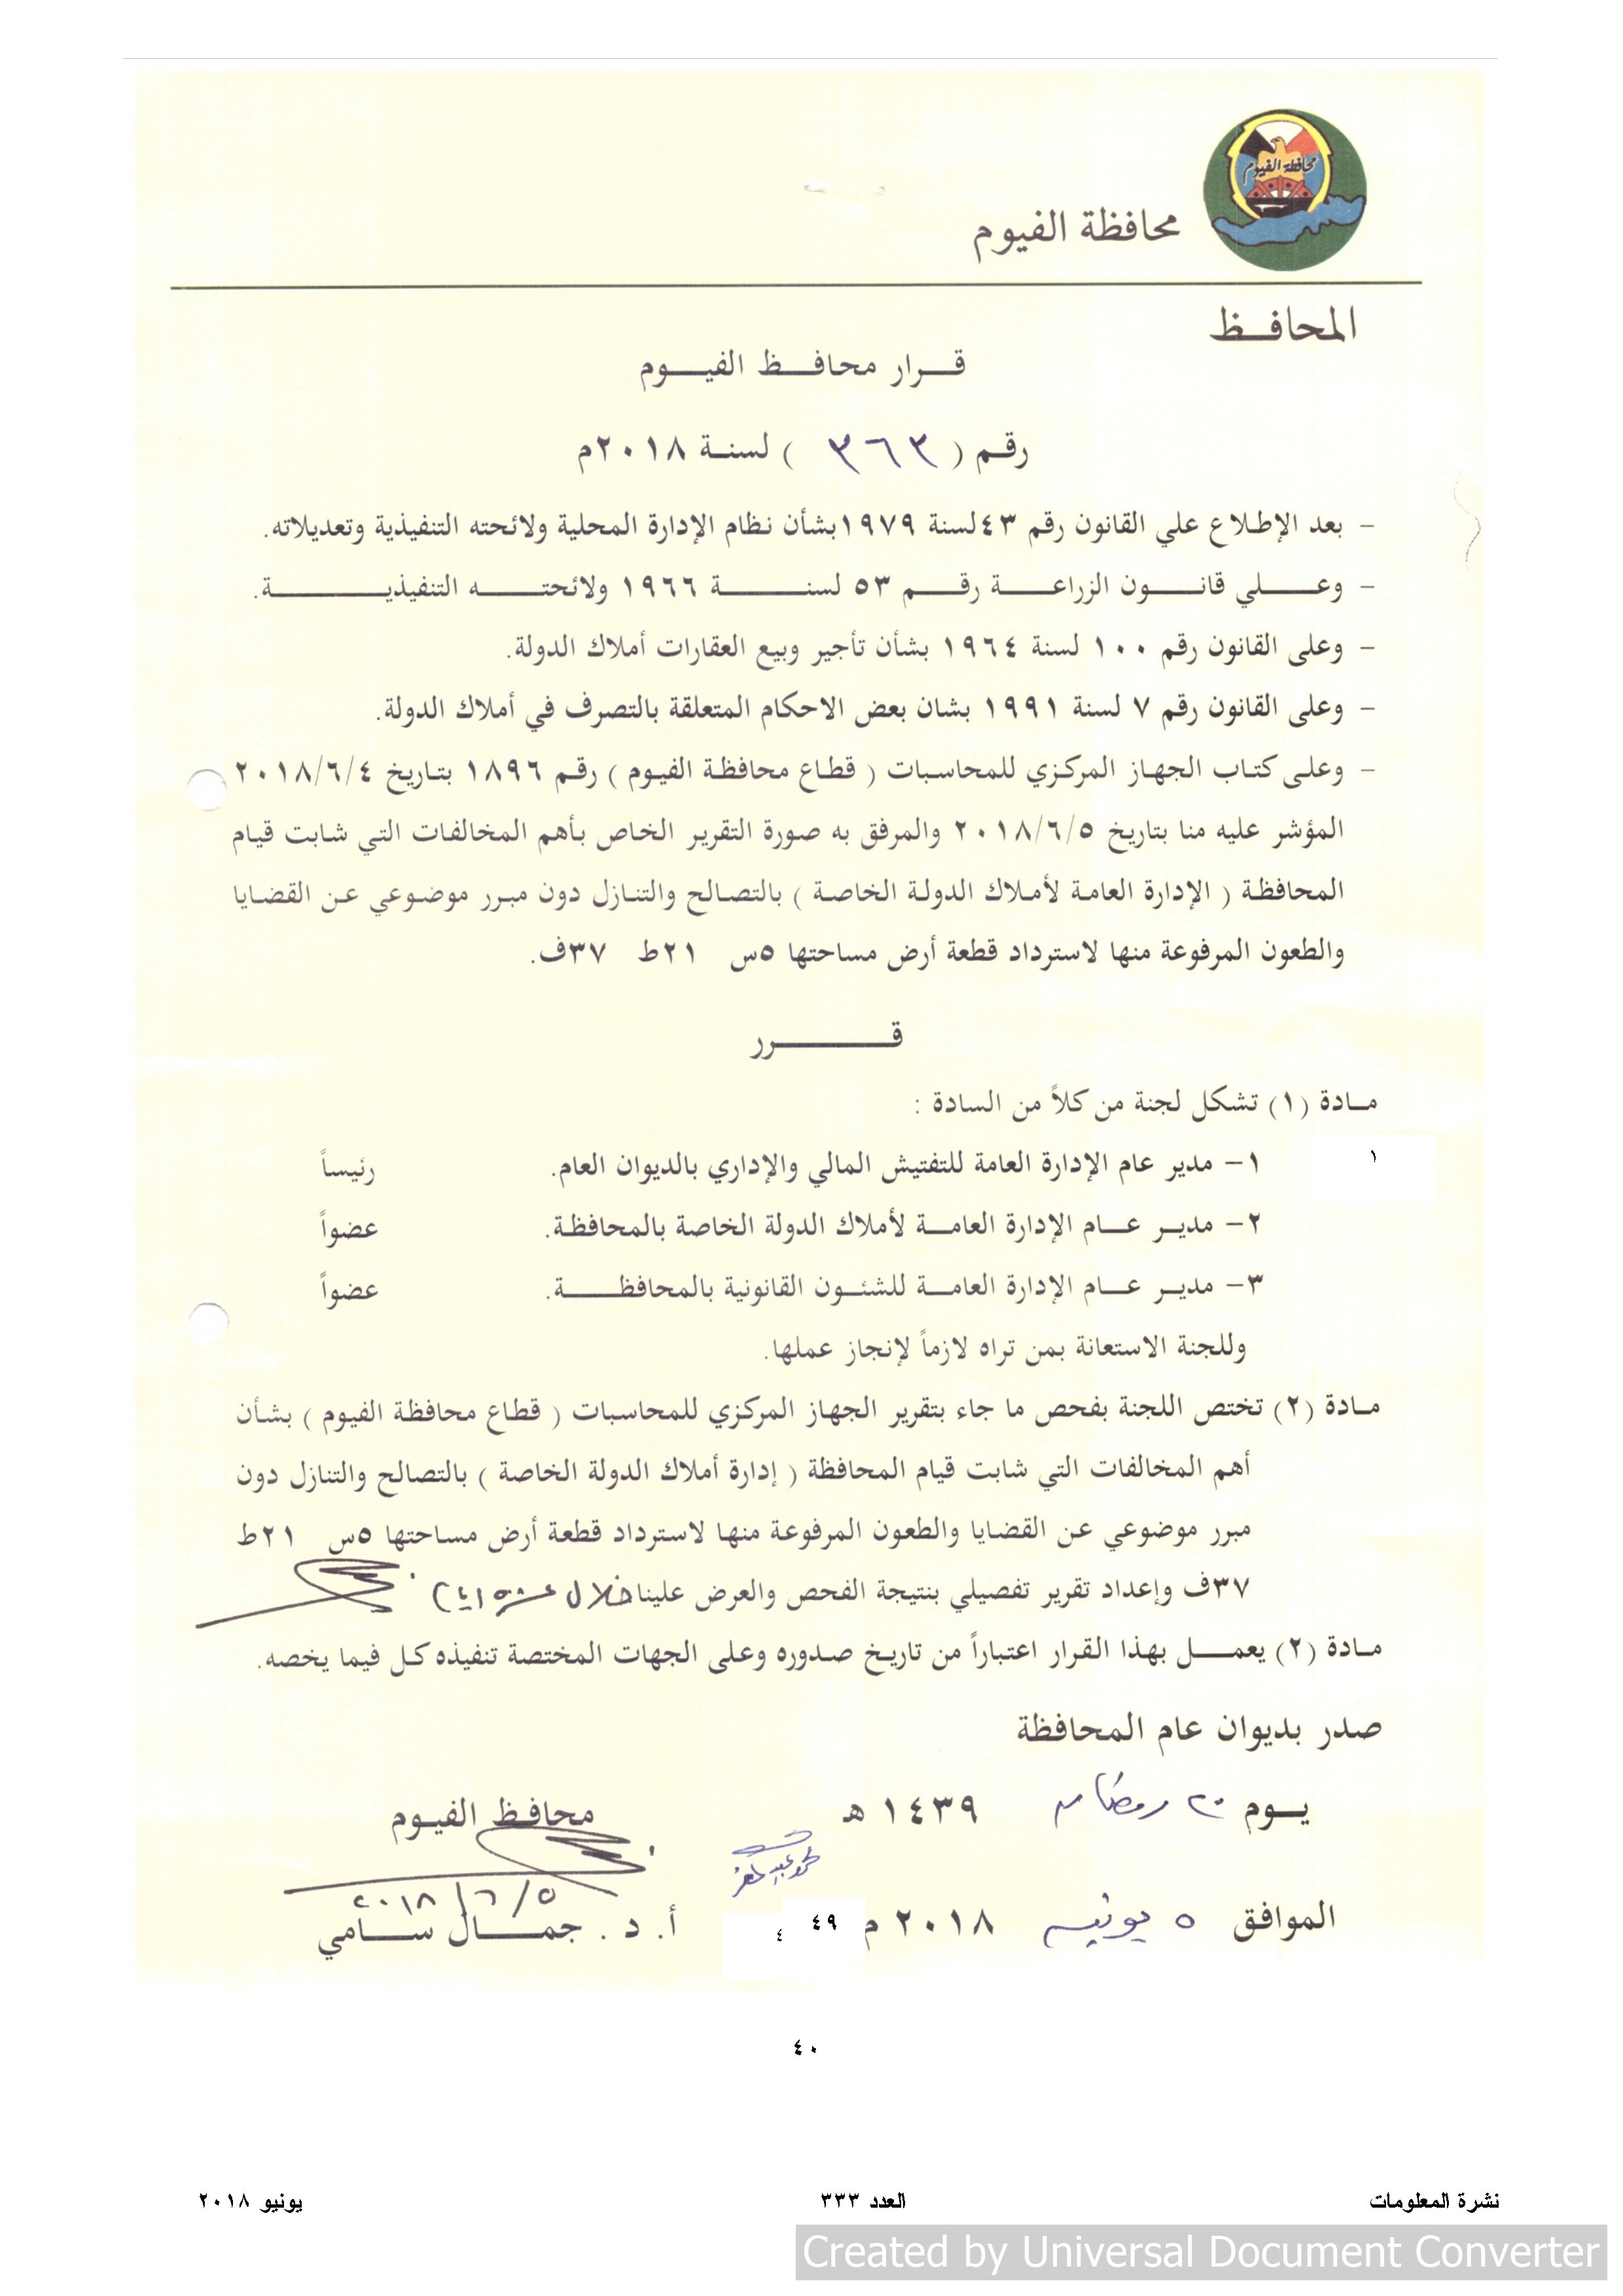 محافظة الفيوم
محافظة الفيوم
المحافظ
قرار محافظ الفيوم
رقم ( ٣٦٣ ) لسنة ٢٠١٨م
- بعد الإطلاع علي القانون رقم ٤٣ لسنة ١٩٧٩ بشأن نظام الإدارة المحلية ولائحته التنفيذية وتعديلاته.
- وعلي قانون الزراعة رقم ٥٣ لسنة ١٩٦٦ ولائحته التنفيذية.
- وعلى القانون رقم ١٠٠ لسنة ١٩٦٤ بشأن تأجير وبيع العقارات أملاك الدولة.
- وعلى القانون رقم ٧ لسنة ١٩٩١ بشان بعض الاحكام المتعلقة بالتصرف في أملاك الدولة.
- وعلى كتاب الجهاز المركزي للمحاسبات ( قطاع محافظة الفيوم ) رقم ١٨٩٦ بتاريخ ٢٠١٨/٦/٤
المؤشر عليه منا بتاريخ ٢٠١٨/٦/٥ والمرفق به صورة التقرير الخاص بأهم المخالفات التي شابت قيام
المحافظة ( الإدارة العامة لأملاك الدولة الخاصة ) بالتصالح والتنازل دون مبرر موضوعي عن القضايا
والطعون المرفوعة منها لاسترداد قطعة أرض مساحتها ٥س ٢١ط ٣٧ف.
قرر
مادة (١) تشكل لجنة من كلاً من السادة :
١
١- مدير عام الإدارة العامة للتفتيش المالي والإداري بالديوان العام. رئيساً
٢- مدير عام الإدارة العامة لأملاك الدولة الخاصة بالمحافظة. عضواً
٣- مدير عام الإدارة العامة للشئون القانونية بالمحافظة. عضواً
وللجنة الاستعانة بمن تراه لازماً لإنجاز عملها.
مادة (٢) تختص اللجنة بفحص ما جاء بتقرير الجهاز المركزي للمحاسبات ( قطاع محافظة الفيوم ) بشأن
أهم المخالفات التي شابت قيام المحافظة ( إدارة أملاك الدولة الخاصة ) بالتصالح والتنازل دون
مبرر موضوعي عن القضايا والطعون المرفوعة منها لاسترداد قطعة أرض مساحتها ٥س ٢١ط
٣٧ف وإعداد تقرير تفصيلي بنتيجة الفحص والعرض علينا خلال عشرة أيام
مادة (٢) يعمل بهذا القرار اعتباراً من تاريخ صدوره وعلى الجهات المختصة تنفيذه كل فيما يخصه.
صدر بديوان عام المحافظة
يوم ٢٠ رمضان ١٤٣٩ هـ
محافظ الفيوم
٢٠١٨/٦/٥
الموافق ٥ يونيه ٢٠١٨ م
٤٩
٤
أ. د . جمال سامي
٤٠
نشرة المعلومات العدد ٣٣٣ يونيو ٢٠١٨
Created by Universal Document Converter